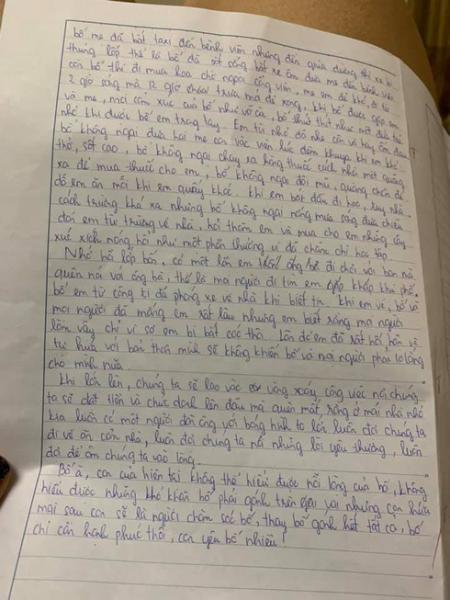 bố mẹ đã bắt taxi đến bệnh viện nhưng đến giữa đường thì xe bị
thủng lốp thế là bố đã sốt sắng bắt xe ôm đưa mẹ đến bệnh viện
còn bố thì đi mua hoa chờ ngoài công viên, mẹ em đẻ khó, đẻ từ
2 giờ sáng mà 12 giờ chưa mới đẻ xong, khi bố được gặp em
và mẹ, mọi cảm xúc của bố như vỡ oà, bố thút thít như một đứa trẻ
nhỏ khi được bế em trong tay. Em từ nhỏ đã nhẹ cân và hay ốm đau
bố không ngại đưa hai mẹ con vào viện lúc đêm khuya khi em khó
thở, sốt cao, bố không ngại chạy ra hàng thuốc cách nhà một quãng
xa để mua thuốc cho em, bố không ngại đội mũ, quàng chăn để
dỗ em ăn mỗi khi em quấy khóc. Khi em bắt đầu đi học, tuy nhà
cách trường khá xa nhưng bố không ngại nắng mưa sáng đưa chiều
đón em từ trường về nhà, hỏi thăm em và mua cho em những cây
xúc xích nóng hổi như một phần thưởng vì đã chăm chỉ học tập.
Nhớ hồi lớp bốn, có một lần em trốn ông bà đi chơi với bạn mà
quên nói với ông bà, thế là mọi người đi tìm em gấp khắp khu phố.
bố em từ công ti đã phóng xe về nhà khi biết tin. Khi em về, bố và
mọi người đã mắng em rất lâu nhưng em biết rằng mọi người
làm vậy chỉ vì sợ em bị bắt cóc thôi. Lần đó em đã rất hối hận và
tự hứa với bản thân mình sẽ không khiến bố và mọi người phải lo lắng
cho mình nữa.
Khi lớn lên, chúng ta sẽ lao vào vòng xoáy công việc nói chung,
ta sẽ đặt tiền và chức danh lên đầu mà quên mất, rằng ở mái nhà nhỏ
kia luôn có một người đàn ông với bóng hình to lớn luôn đợi chúng ta
đi về ăn cơm nhà, luôn đợi chúng ta nói những lời yêu thương, luôn
đợi để ôm chúng ta vào lòng.
Bố à, con của hiện tại không thể hiểu được nỗi lòng của bố, không
hiểu được những khó khăn bố phải gánh trên vai nhưng con hứa
mai sau con sẽ là người chăm sóc bố, thay bố gánh hết tất cả, bố
chỉ cần hạnh phúc thôi, con yêu bố nhiều!